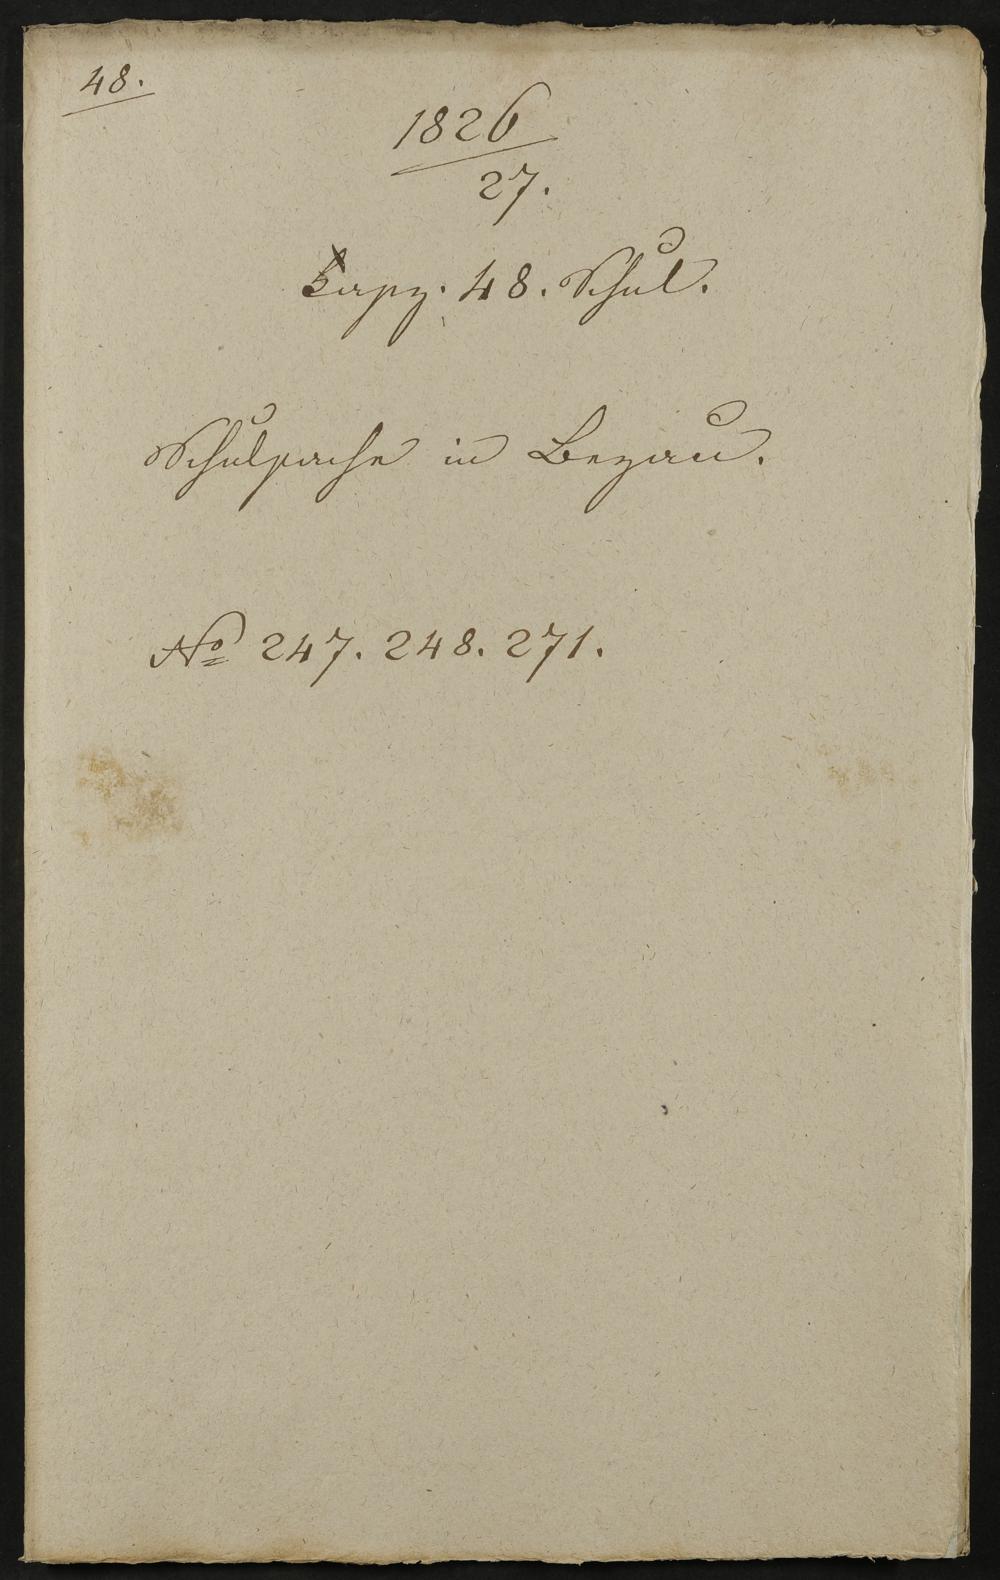 48.
1826
27.
Fasz. 48. Schul.
Schulsache in Bezau.
No 247. 248. 271.